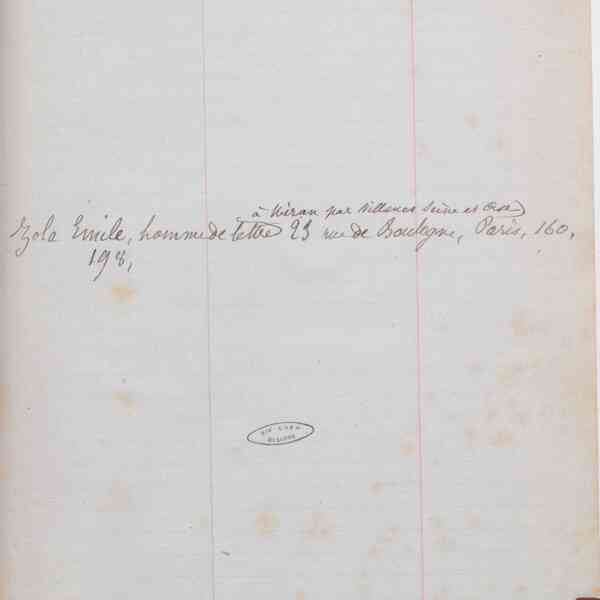 à Méran par Villenes Seine et Oise
Zola Emile, homme de lettre 23 rue de Boulogne, Paris, 160,
198,